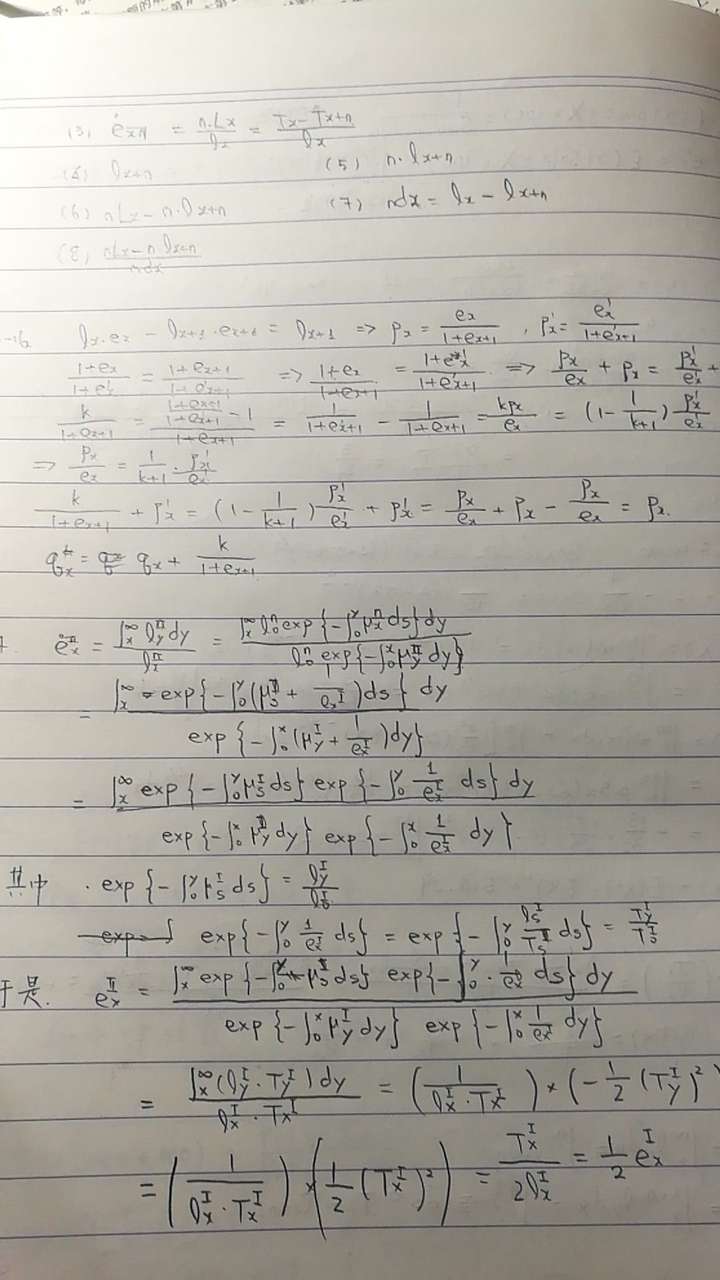 (3) e̊x:n = n·Lx/lx = (Tx - Tx+n)/lx
(4) lx+n (5) n·lx+n
(6) nLx - n·lx+n (7) ndx = lx - lx+n
(8) (nLx - n lx+n)/ndx
lx·ex - lx+1·ex+1 = lx+1 => px = ex/(1+ex+1) , p'x = e'x/(1+e'x+1)
(1+ex)/(1+e'x) = (1+ex+1)/(1+e'x+1) => (1+ex)/(1+ex+1) = (1+e'x)/(1+e'x+1) => px/ex + px = p'x/e'x +
k/(1+ex+1) = ((1+ex+1)/(1+e'x+1) - 1)/(1+ex+1) = 1/(1+e'x+1) - 1/(1+ex+1) = kpx/ex = (1 - 1/(k+1)) p'x/e'x
=> px/ex = 1/(k+1) · p'x/e'x
k/(1+ex+1) + p'x = (1 - 1/(k+1)) p'x/e'x + p'x = px/ex + px - px/ex = px
qx + k/(1+ex+1)
e̊x^Ⅱ = ∫x^∞ ly^Ⅱ dy / lx^Ⅱ = ∫x^∞ l0^Ⅱ exp{-∫0^y μs^Ⅱ ds} dy / l0^Ⅱ exp{-∫0^x μy^Ⅱ dy}
= ∫x^∞ exp{-∫0^y (μs^Ⅰ + 1/es^Ⅰ) ds} dy / exp{-∫0^x (μy^Ⅰ + 1/ex^Ⅰ) dy}
= ∫x^∞ exp{-∫0^y μs^Ⅰ ds} exp{-∫0^y 1/ex^Ⅰ ds} dy / exp{-∫0^x μy^Ⅰ dy} exp{-∫0^x 1/ex^Ⅰ dy}
其中 · exp{-∫0^y μs^Ⅰ ds} = ly^Ⅰ/l0^Ⅰ
exp{-∫0^y 1/ex^Ⅰ ds} = exp{-∫0^y ls^Ⅰ/Ts^Ⅰ ds} = Ty^Ⅰ/Ts^Ⅰ
于是. ex^Ⅱ = ∫x^∞ exp{-∫0^y μs^Ⅰ ds} exp{-∫0^y · 1/ex^Ⅰ ds} dy / exp{-∫0^x μy^Ⅰ dy} exp{-∫0^x 1/ex^Ⅰ dy}
= ∫x^∞ (ly^Ⅰ · Ty^Ⅰ) dy / lx^Ⅰ · Tx^Ⅰ = (1/(lx^Ⅰ · Tx^Ⅰ)) × (-1/2 (Ty^Ⅰ)²)
= (1/(lx^Ⅰ · Tx^Ⅰ)) × (1/2 (Tx^Ⅰ)²) = Tx^Ⅰ/2lx^Ⅰ = 1/2 ex^Ⅰ